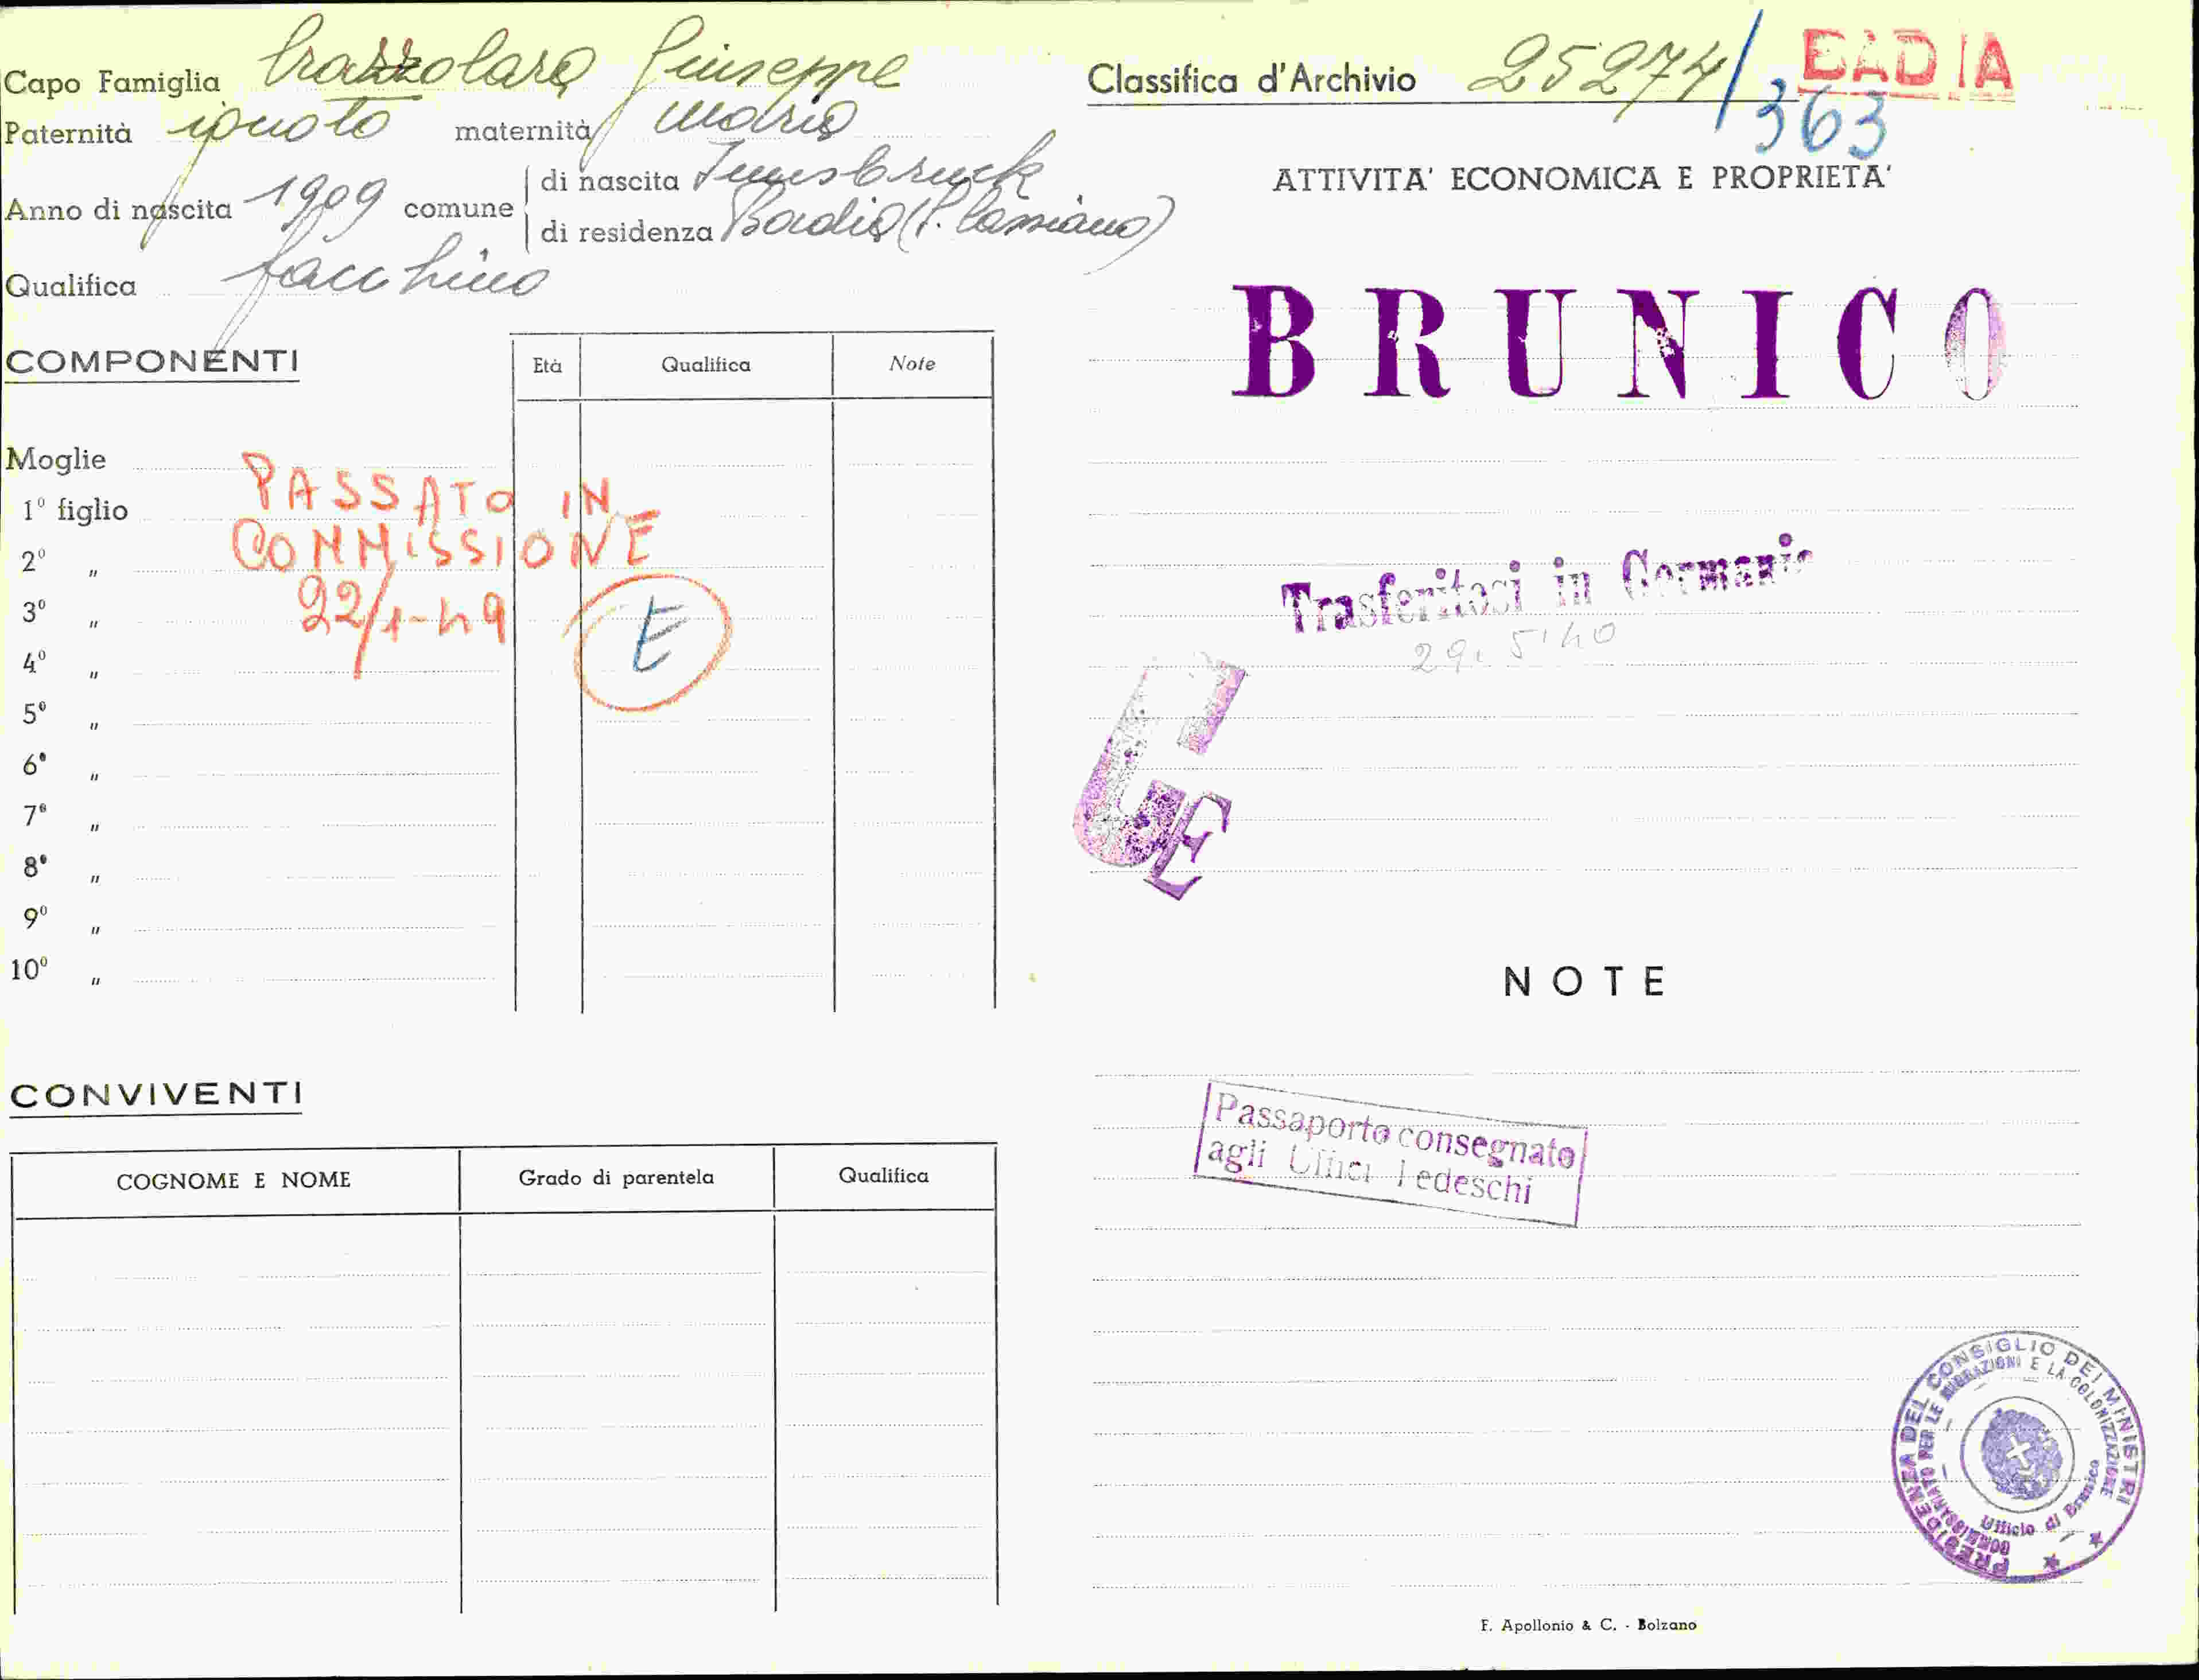 Capo Famiglia Crazzolara Giuseppe
Paternità ignoto maternità Maria
Anno di nascita 1909 comune di nascita Innsbruck
di residenza Badia (S. Cassiano)
Qualifica facchino
COMPONENTI
Età Qualifica Note
Moglie
1º figlio
2º "
3º "
4º "
5º "
6º "
7º "
8º "
9º "
10º "
PASSATO IN
COMMISSIONE
22/1-49
E
CONVIVENTI
COGNOME E NOME Grado di parentela Qualifica
Classifica d'Archivio 25274/363
BADIA
ATTIVITA' ECONOMICA E PROPRIETA'
BRUNICO
Trasferitosi in Germania
29. 5' 40
G
E
NOTE
Passaporto consegnato
agli Uffici Tedeschi
PRESIDENZA DEL CONSIGLIO DEI MINISTRI
COMMISSARIATO PER LE MIGRAZIONI E LA COLONIZZAZIONE
Ufficio di Brunico
F. Apollonio & C. - Bolzano